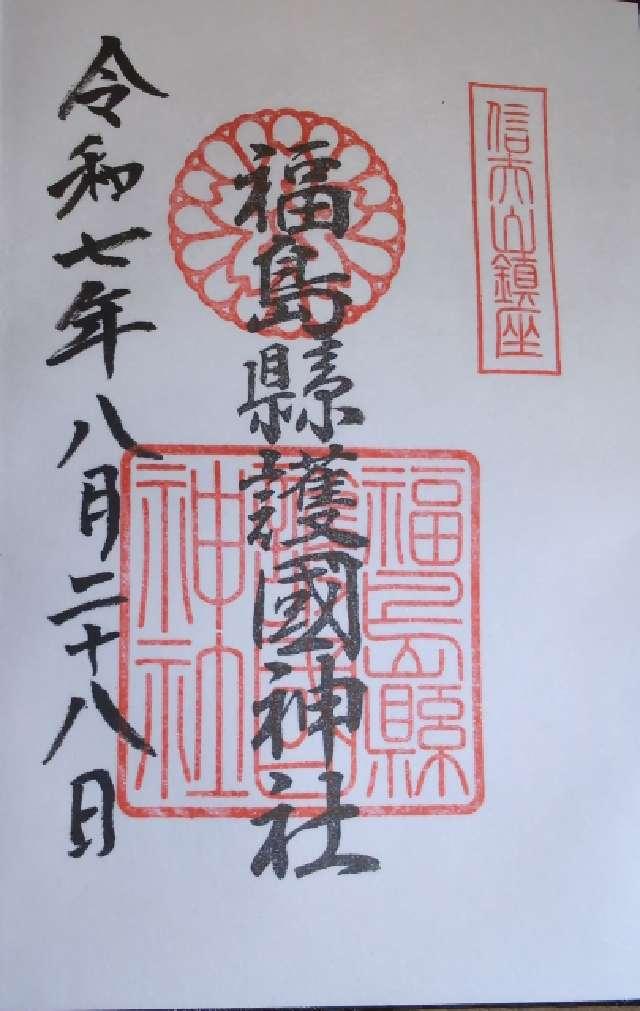 信夫山鎮座
福島縣護國神社
福島縣護國神社
令和七年八月二十八日